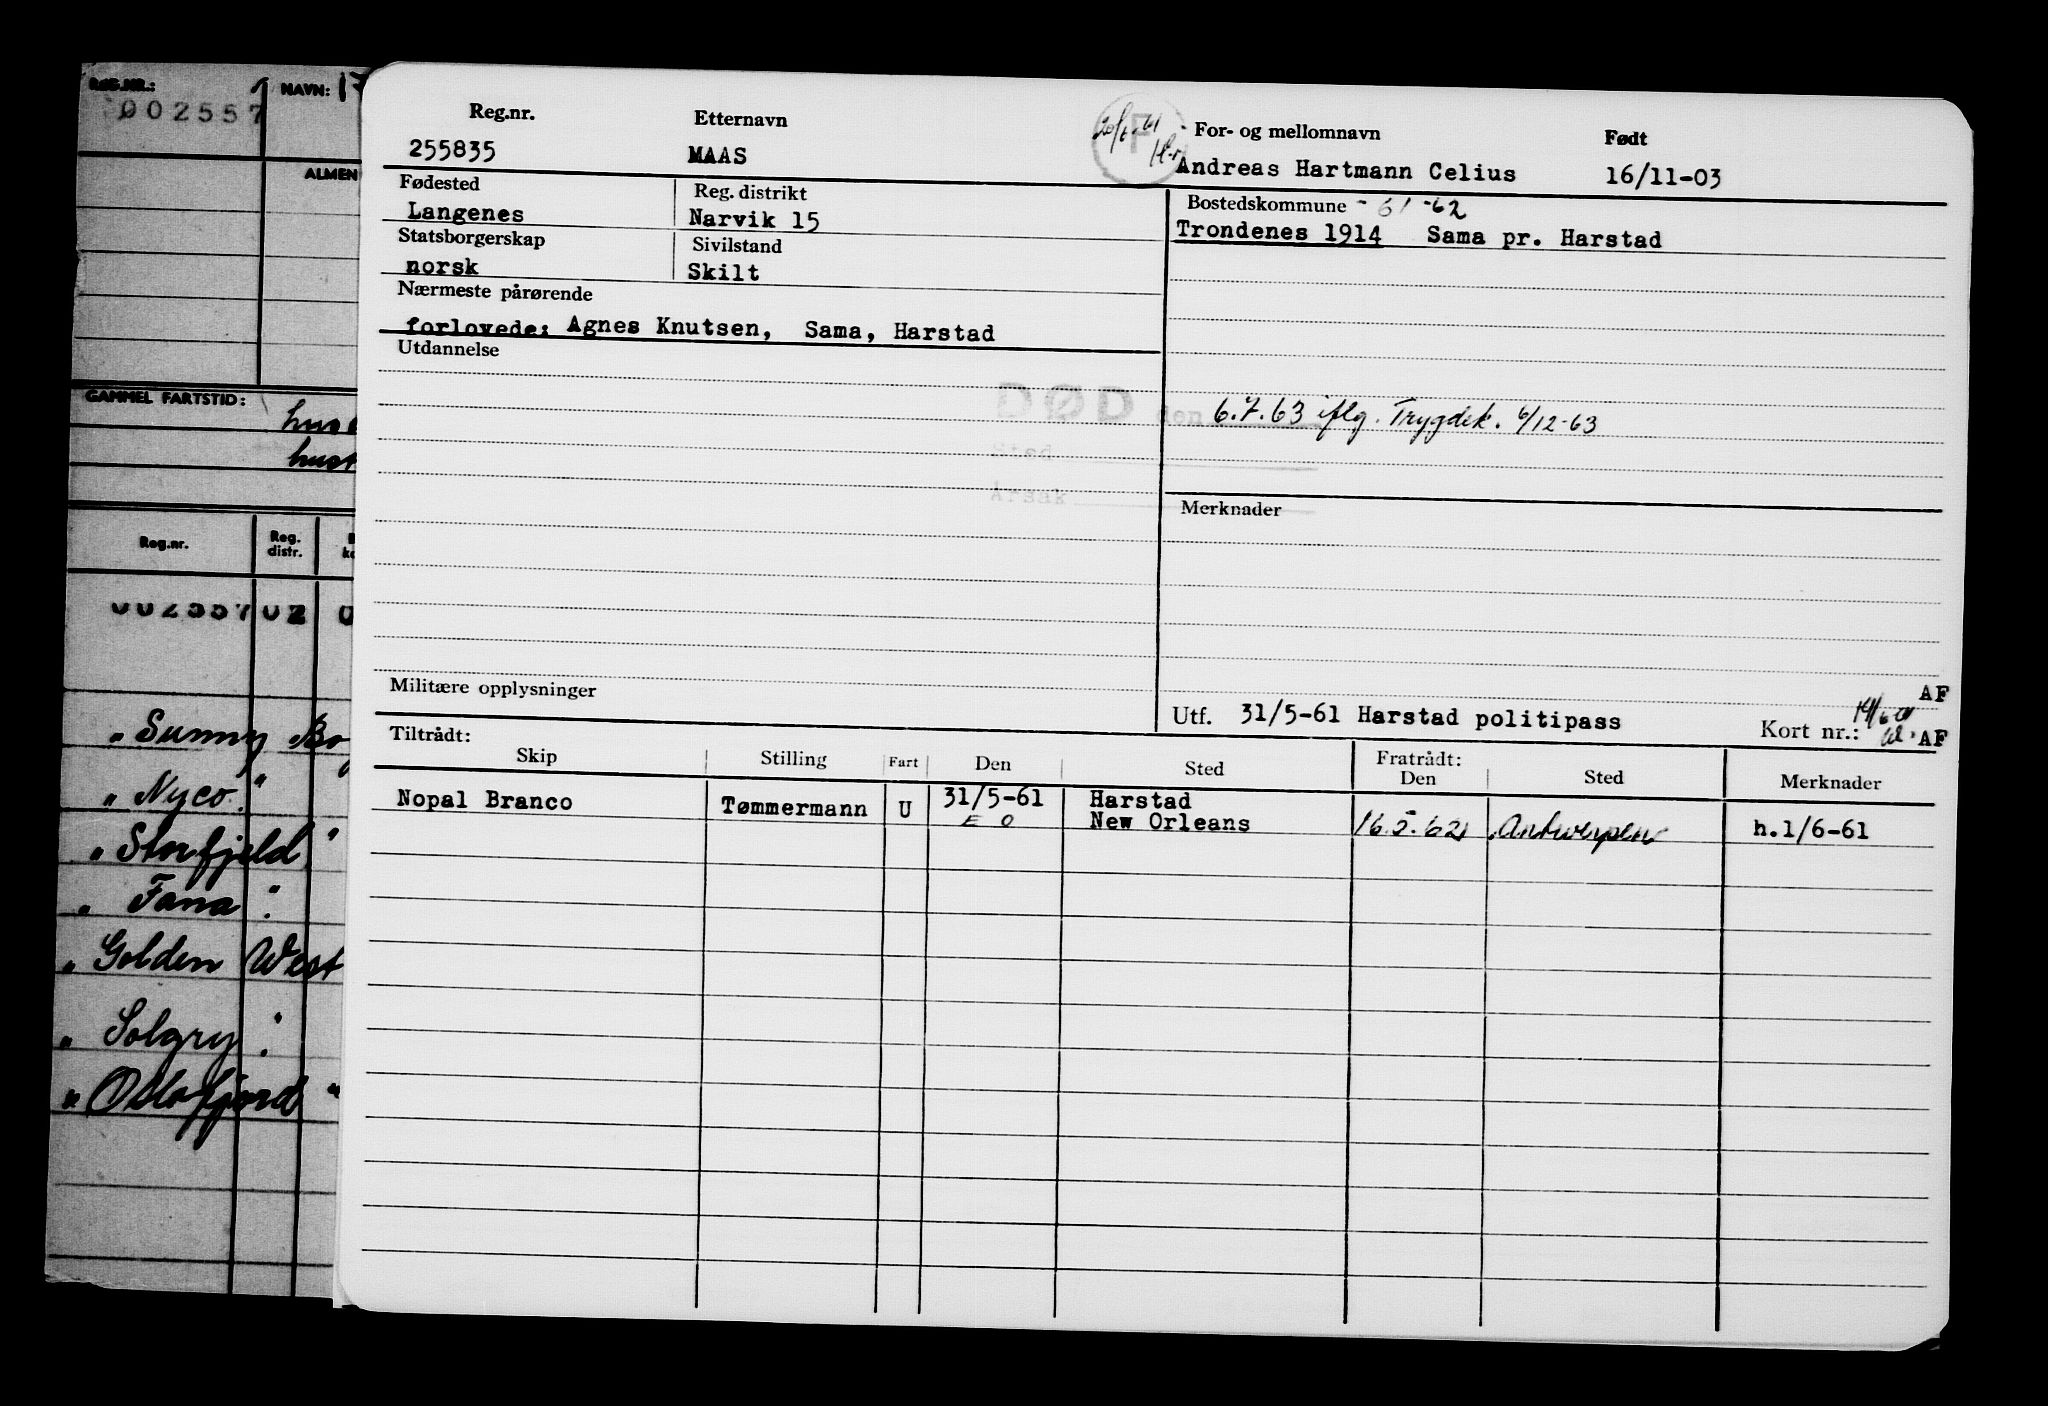 REG.NR.:
NAVN:
002557
ALMEN
GAMMEL FARTSTID:
Reg.nr.
Reg. distr.
002557 02
" Sunny
" Nyco. "
" Storfjeld "
" Fana "
" Golden West
" Solgry "
" Oslofjord "
Reg.nr. Etternavn For- og mellomnavn Født
255835 MAAS Andreas Hartmann Celius 16/11-03
F
Fødested Reg. distrikt Bostedskommune - 61 -62
Langenes Narvik 15 Trondenes 1914 Sama pr. Harstad
Statsborgerskap Sivilstand
norsk Skilt
Nærmeste pårørende
forlovede: Agnes Knutsen, Sama, Harstad
Utdannelse
DØD den 6.7.63 iflg. Trygdek. 6/12-63
Sted
Årsak
Merknader
Militære opplysninger
AF
Utf. 31/5-61 Harstad politipass Kort nr.: AF
Tiltrådt: Fratrådt:
Skip Stilling Fart Den Sted Den Sted Merknader
Nopal Branco Tømmermann U 31/5-61 Harstad
E O New Orleans 16.5.62 Antwerpen h.1/6-61